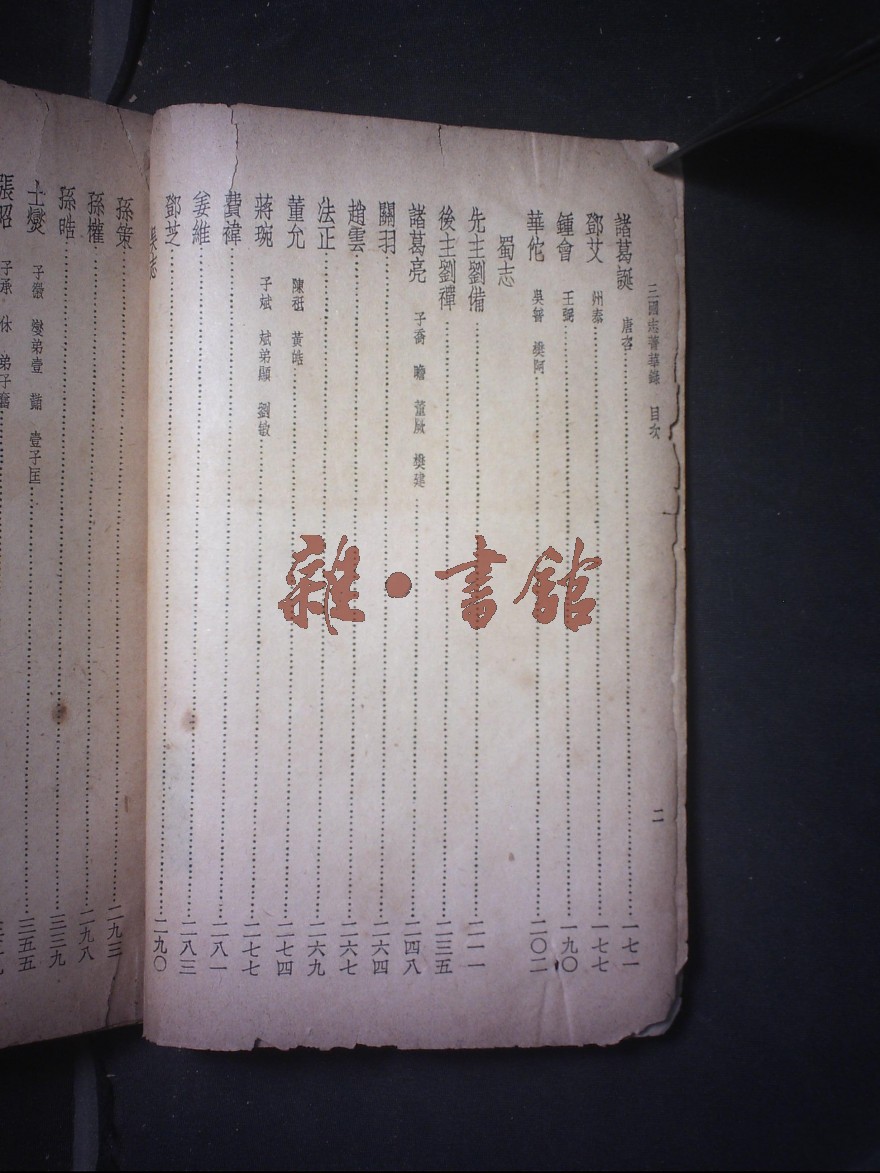 三國志菁華錄 目次 二
諸葛誕 唐咨 一七一
鄧艾 州泰 一七七
鍾會 王弼 一九〇
華佗 吳普 樊阿 二〇二
蜀志
先主劉備 二一一
後主劉禪 二三五
諸葛亮 子喬 瞻 董厥 樊建 二四八
關羽 二六四
趙雲 二六七
法正 二六九
董允 陳祗 黃皓 二七四
蔣琬 子斌 斌弟顯 劉敏 二七七
費禕 二八一
姜維 二八三
鄧芝 二九〇
吳志
孫策 二九三
孫權 二九八
孫晧 三三九
士燮 子徽 燮弟壹 䵋 壹子匡 三五五
張昭 子承 休 弟子奮
雜·書館